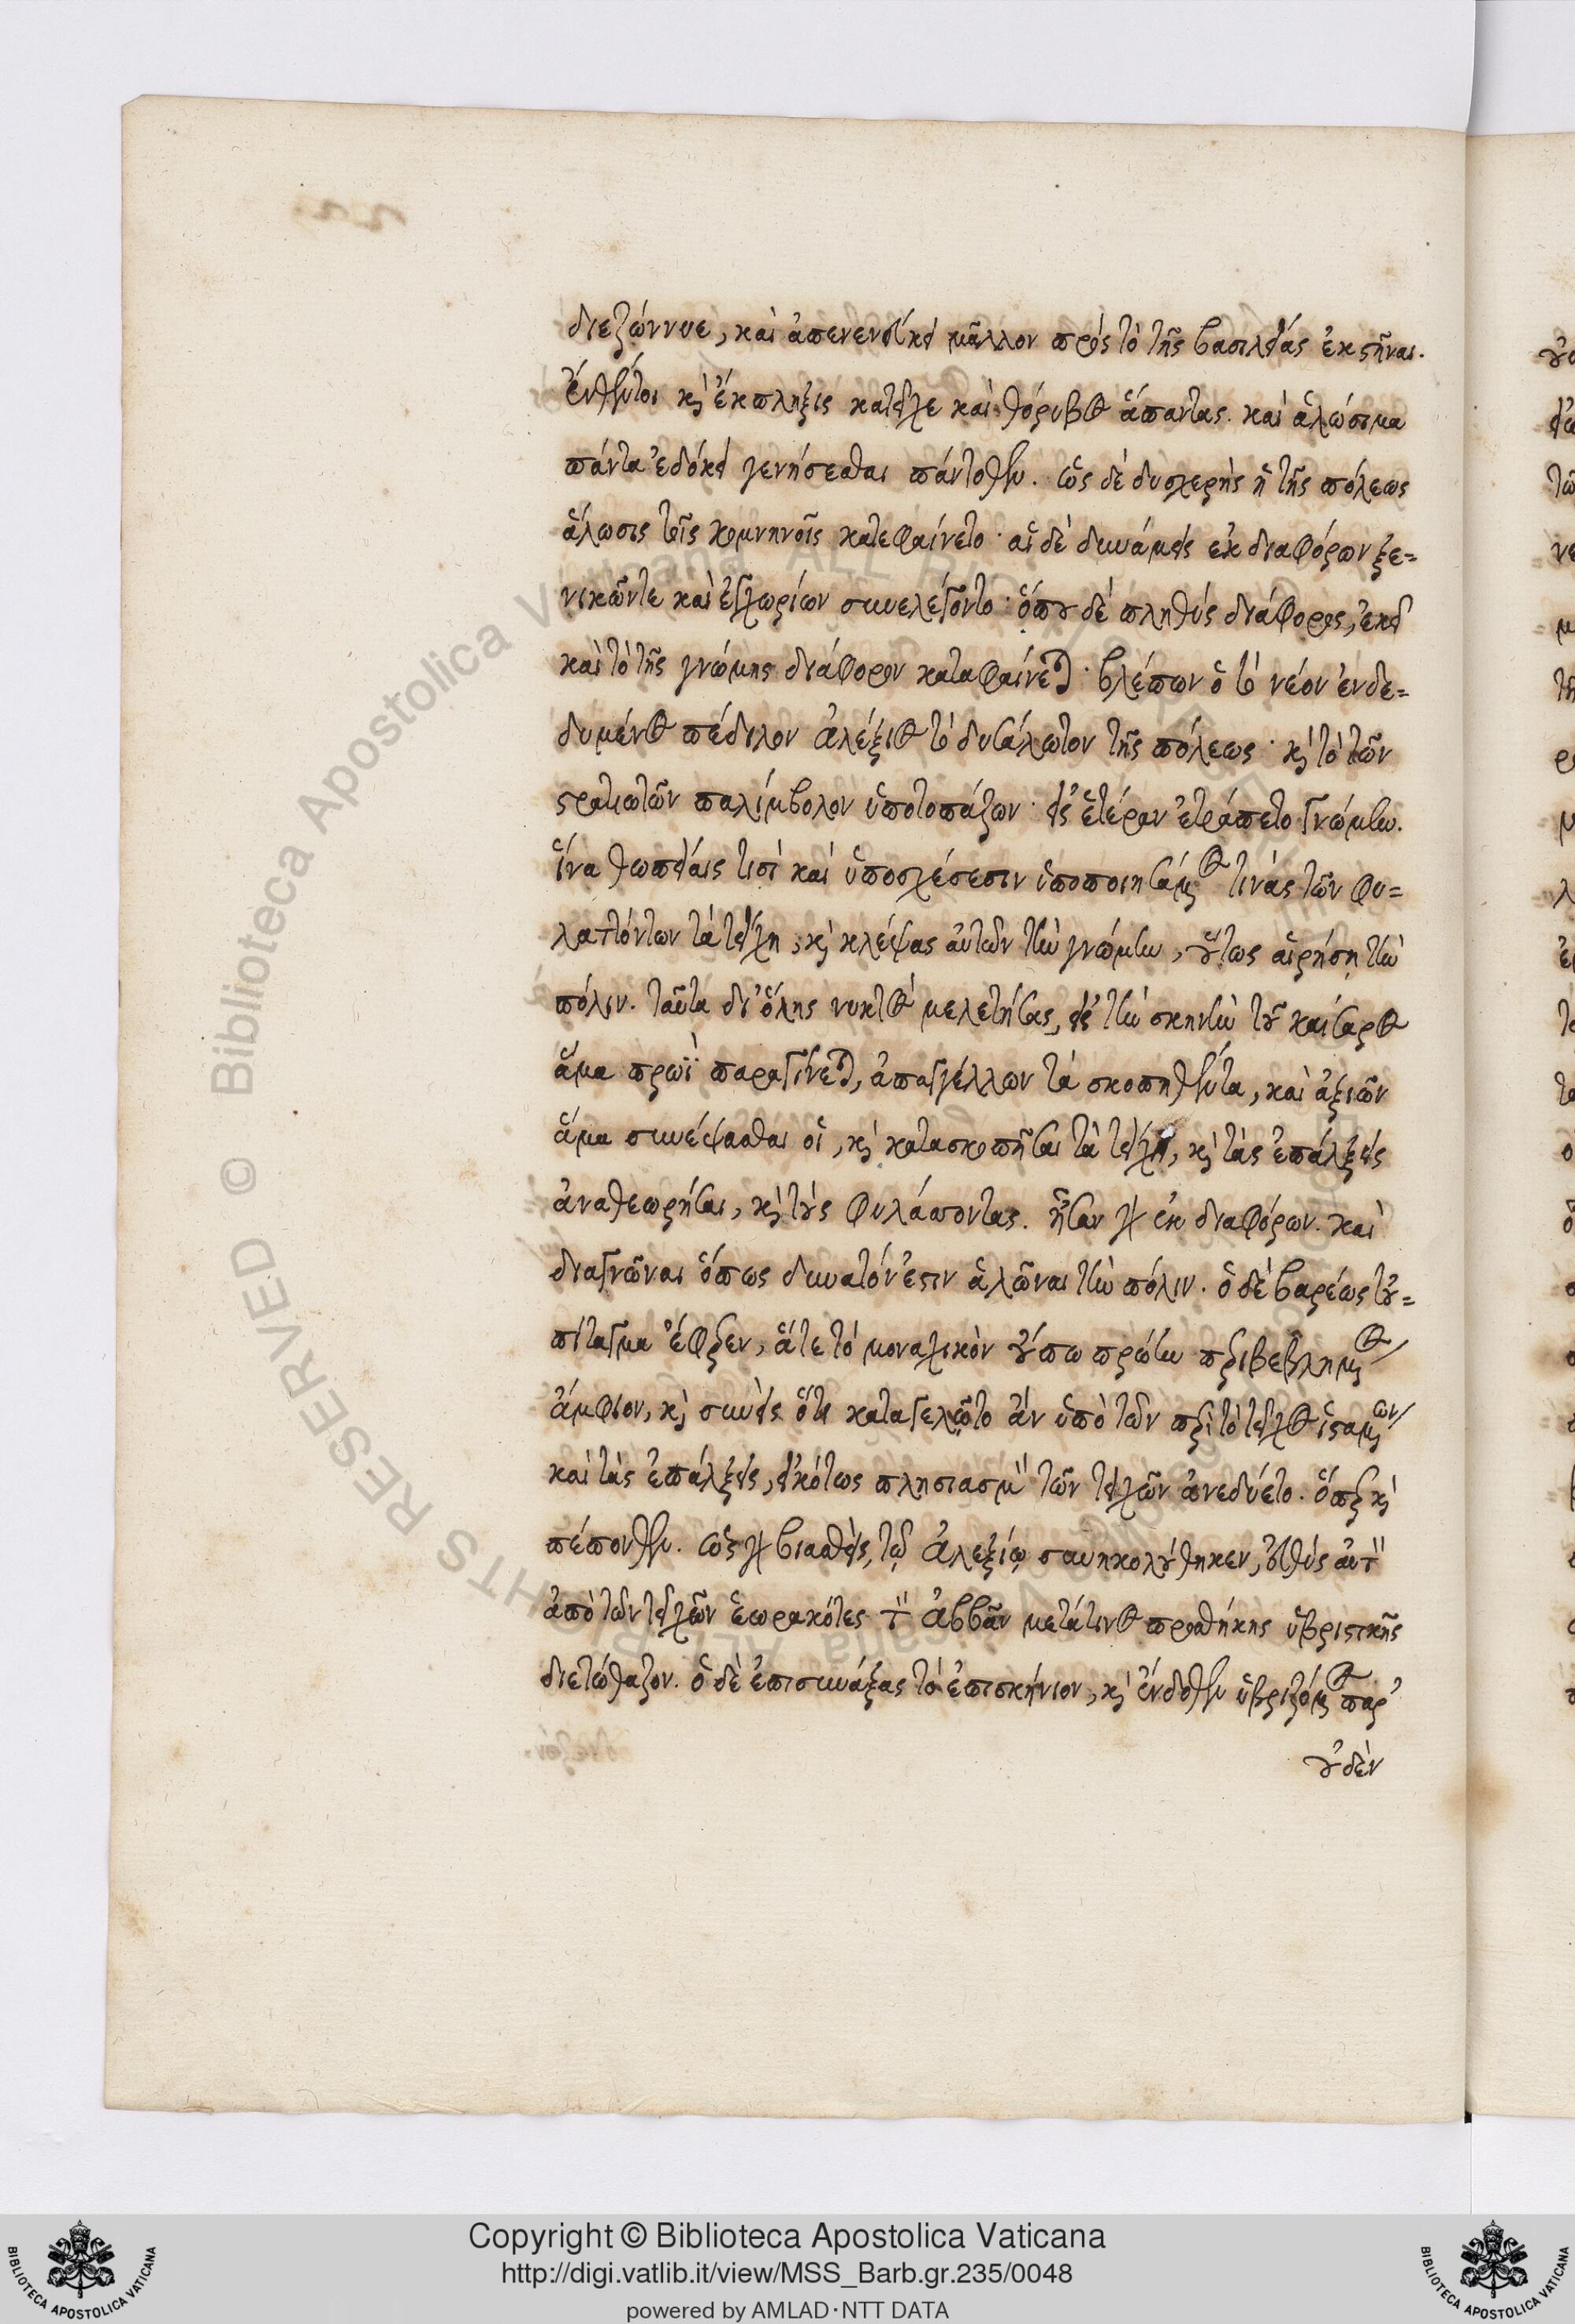 διεζώννυε, καὶ ἀπενενεύκει μᾶλλον πρὸς τὸ τῆς βασιλείας ἐκστῆναι.
ἐνθέντοι καὶ ἔκπληξις κατεῖχε καὶ θόρυβος ἅπαντας. καὶ ἁλώσιμα
πάντα ἐδόκει γενήσεσθαι πάντοθεν. ὡς δὲ δυσχερὴς ἡ τῆς πόλεως
ἅλωσις τοῖς κομνηνοῖς κατεφαίνετο· αἱ δὲ δυνάμεις ἐκ διαφόρων ξε=
νικῶντε καὶ ἐγχωρίων συνελέγοντο· ὅπου δὲ πληθὺς διάφορος, ἐκεῖ
καὶ τὸ τῆς γνώμης διάφορον καταφαίνεται· βλέπων ὁ τὸ νέον ἐνδε=
δυμένος πέδιλον ἀλέξιος τὸ δυσάλωτον τῆς πόλεως· καὶ τὸ τῶν
στρατιωτῶν παλίμβολον ὑποτοπάζων· εἰς ἑτέραν ἐτράπετο γνώμην.
ἵνα θωπείαις τισὶ καὶ ὑποσχέσεσιν ὑποποιησάμενος τινὰς τῶν φυ=
λαττόντων τὰ τείχη, καὶ κλέψας αὐτῶν τὴν γνώμην, οὕτως αἱρήσῃ τὴν
πόλιν. ταῦτα δι' ὅλης νυκτὸς μελετήσας, εἰς τὴν σκηνὴν τοῦ καίσαρος
ἅμα πρωῒ παραγίνεται, ἀπαγγέλλων τὰ σκοπηθέντα, καὶ ἀξιῶν
ἅμα συνέψεσθαι οἱ, καὶ κατασκοπῆσαι τὰ τείχη, καὶ τὰς ἐπάλξεις
ἀναθεωρῆσαι, καὶ τοὺς φυλάττοντας. ἦσαν γὰρ ἐκ διαφόρων. καὶ
διαγνῶναι ὅπως δυνατόν ἐστιν ἁλῶναι τὴν πόλιν. ὁ δὲ βαρέως τοὐ=
πίταγμα ἔφερεν, ἅτε τὸ μοναχικὸν οὔπω πρώτην περιβεβλημένος
ἄμφιον, καὶ συνεὶς ὅτι καταγελῷτο ἂν ὑπὸ τῶν περὶ τὸ τεῖχος ἱσταμένων
καὶ τὰς ἐπάλξεις, εἰκότως πλησιασμὸν τῶν τειχῶν ἀνεδύετο. ὅπερ καὶ
πέπονθεν. ὡς γὰρ βιασθεὶς, τῷ ἀλεξίῳ συνηκολούθηκεν, εὐθὺς αὐτὸν
ἀπὸ τῶν τειχῶν ἑωρακότες τὸν ἀββᾶν μετά τινος προσθήκης ὑβριστικῆς
διετώθαζον. ὁ δὲ ἐπισυνάξας τὸ ἐπισκήνιον, καὶ ἔνδοθεν ὑβριζόμενος παρ'
οὐδὲν
Copyright © Biblioteca Apostolica Vaticana
http://digi.vatlib.it/view/MSS_Barb.gr.235/0048
powered by AMLAD·NTT DATA